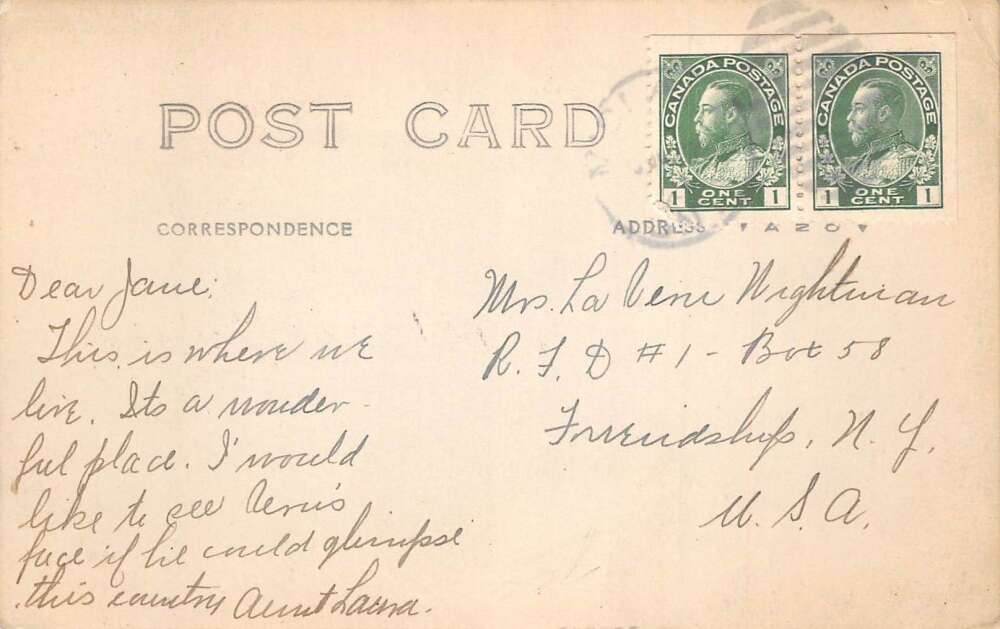 CANADA POSTAGE
1 ONE CENT 1
CANADA POSTAGE
1 ONE CENT 1
POST CARD
CORRESPONDENCE
ADDRESS
AZO
Dear Jane:
This is where we
live. Its a wonder-
ful place. I'would
like to see Vern's
face if he could glimpse
this country Aunt Laura.
Mrs. La Vern Wightman
R. F. D #1 - Box 58
Friendship, N. Y.
U. S. A.